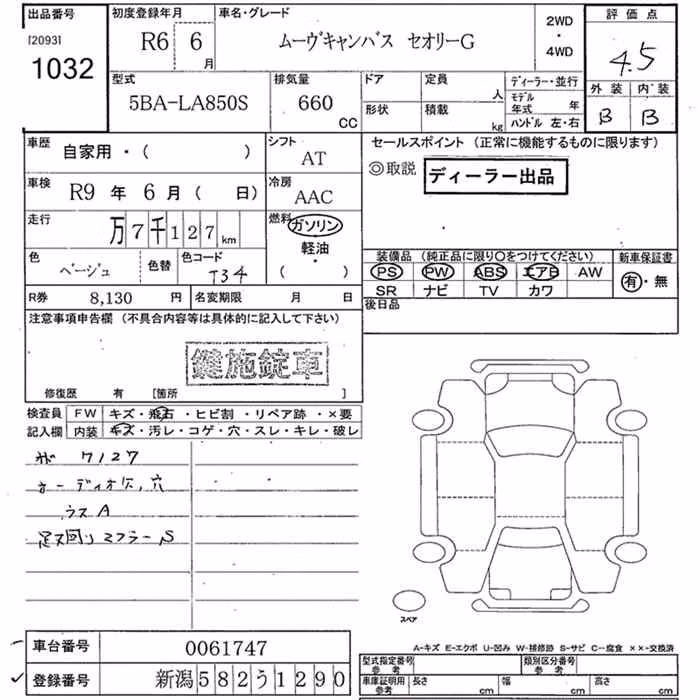 出品番号
[2093]
1032
初度登録年月
R6 6月
車名・グレード
ムーヴキャンバス セオリーG
2WD
・
4WD
評価点
4.5
外装 内装
B B
型式
5BA-LA850S
排気量
660
CC
ドア
形状
定員
人
積載
kg
ディーラー・並行
モデル
年式 年
ハンドル 左・右
車歴
自家用・( )
シフト
AT
車検
R9 年 6 月 ( 日)
冷房
AAC
走行
万7千127km
燃料
ガソリン
軽油・
( )
色
ベージュ
色替
色コード
T34
R券 8,130 円
名変期限 月 日
セールスポイント (正常に機能するものに限ります)
◎取説
ディーラー出品
装備品 (純正品に限り〇をつけてください)
新車保証書
PS PW ABS エアB AW
有・無
SR ナビ TV カワ
後日品
注意事項申告欄 (不具合内容等は具体的に記入して下さい)
鍵施錠車
修復歴 有 [箇所 ]
検査員
記入欄
FW キズ・飛石・ヒビ割・リペア跡・×要
内装 キズ・汚レ・コゲ・穴・スレ・キレ・破レ
7127
オーディオ欠,穴
ウスA
足又回リマフラーS
スペア
車台番号
0061747
登録番号
新潟582う1290
A-キズ E-エクボ U-凹み W-補修跡 S-サビ C-腐食 ××-交換済
型式指定番号
参考
類別区分番号
参考
車庫証明用
参考
長さ cm
幅 cm
高さ cm